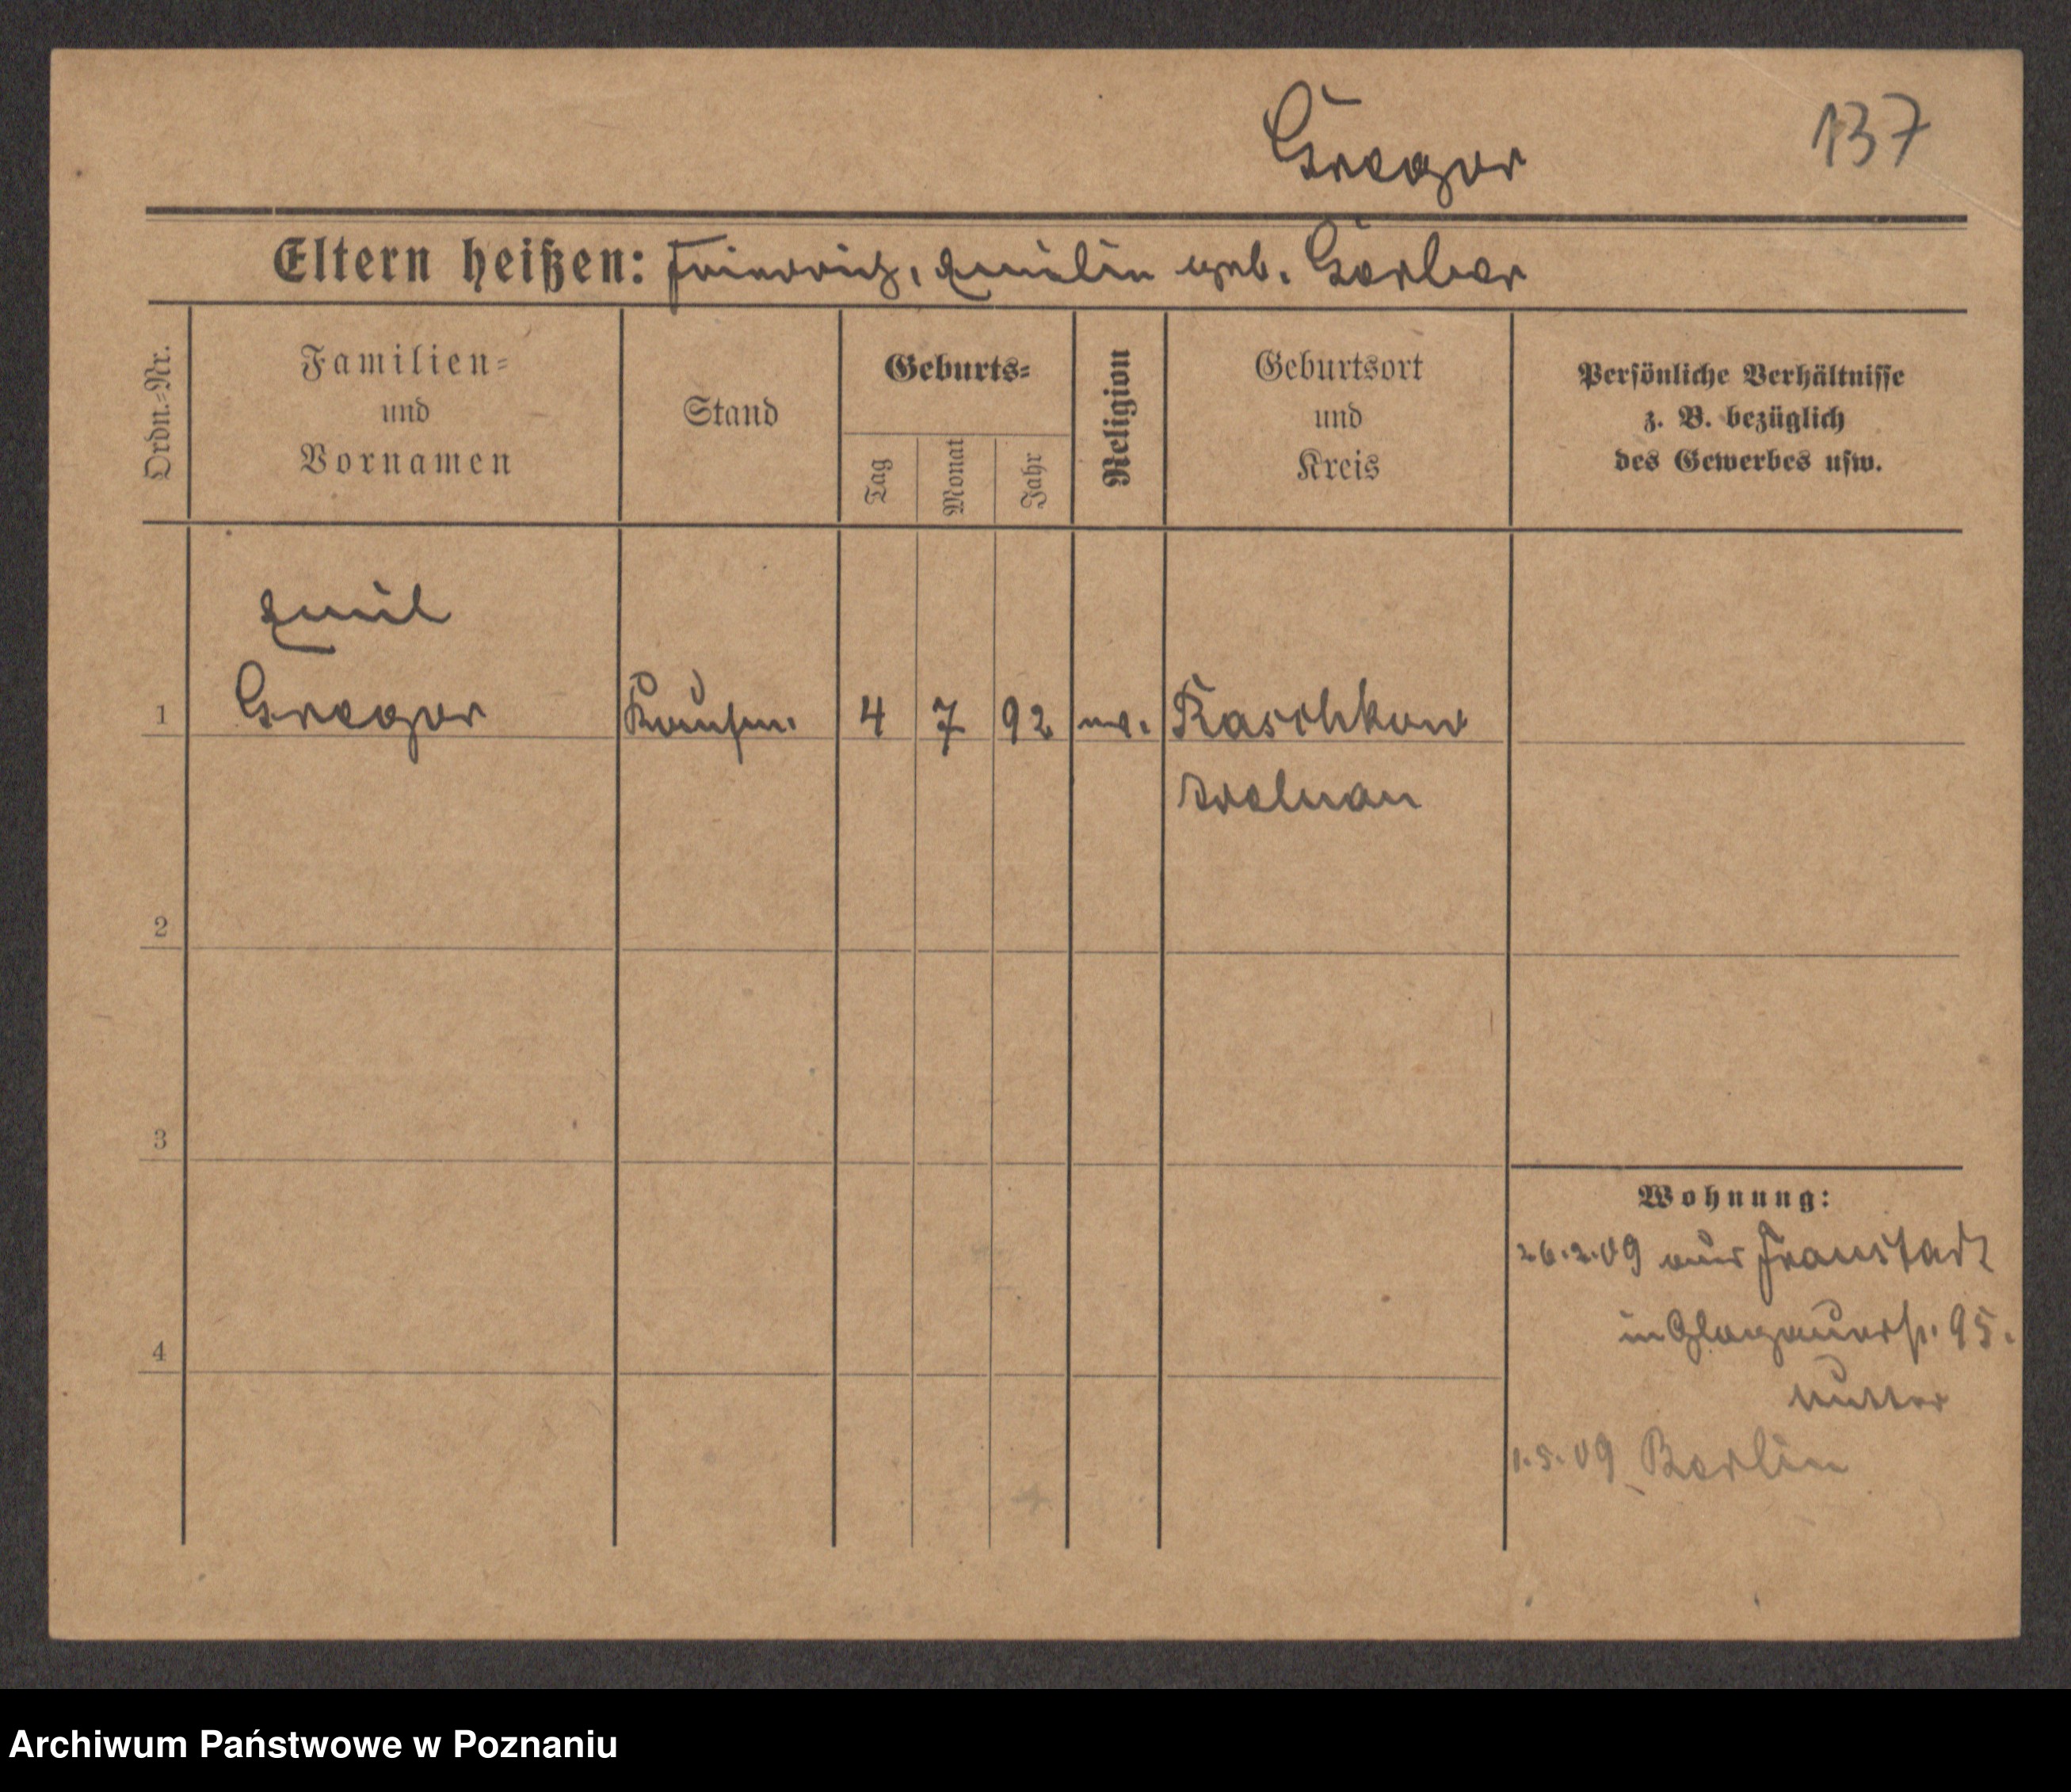 Gregor
137
Eltern heißen: Friedrich, Emilie geb. Gerber
Ordn.-Nr.
Familien-
und
Vornamen
Stand
Geburts-
Tag
Monat
Jahr
Religion
Geburtsort
und
Kreis
Persönliche Verhältnisse
z. B. bezüglich
des Gewerbes usw.
Emil
1 Gregor Kaufm. 4 7 92 ev. Raschkow
Adelnau
2
3
4
Wohnung:
26.2.09 aus Fraustadt
in Glogauerstr. 95.
Mutter
1.5.09 Berlin
Archiwum Państwowe w Poznaniu